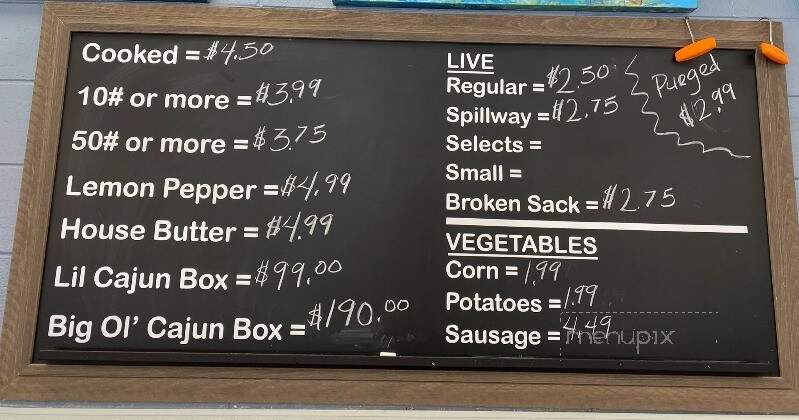 Cooked = $4.50
10# or more = $3.99
50# or more = $3.75
Lemon Pepper = $4.99
House Butter = $4.99
Lil Cajun Box = $99.00
Big Ol' Cajun Box = $190.00
LIVE
Regular = $2.50
Spillway = $2.75
Purged
$2.99
Selects =
Small =
Broken Sack = $2.75
VEGETABLES
Corn = 1.99
Potatoes = 1.99
Sausage = 4.49
menupix